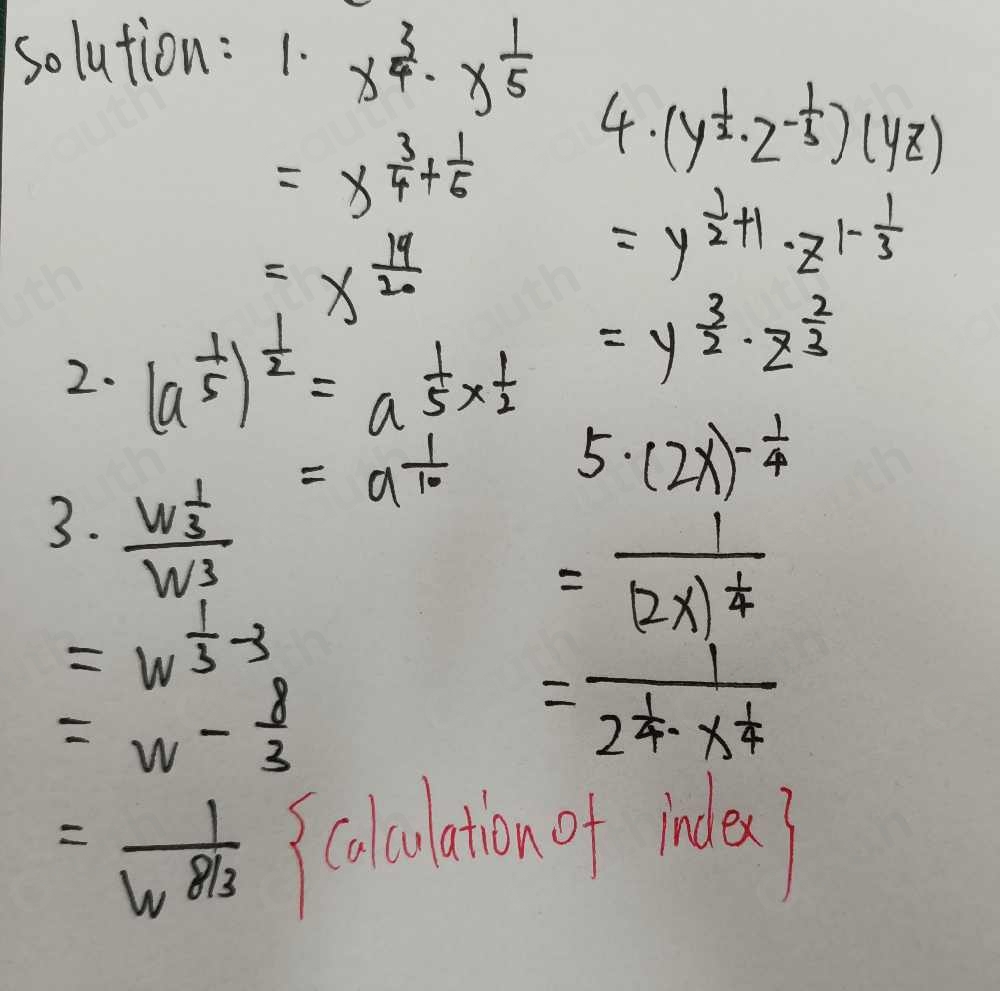 Solution: 1. x^{3/4} · x^{1/5}
= x^{3/4 + 1/5}
= x^{19/20}
2. (a^{1/5})^{1/2} = a^{1/5 × 1/2}
= a^{1/10}
3. \frac{w^{1/3}}{w^3}
= w^{1/3 - 3}
= w^{-8/3}
= \frac{1}{w^{8/3}} {Calculation of index}
4. (y^{1/2} · z^{-1/3})(yz)
= y^{1/2 + 1} · z^{1 - 1/3}
= y^{3/2} · z^{2/3}
5. (2x)^{-1/4}
= \frac{1}{(2x)^{1/4}}
= \frac{1}{2^{1/4} · x^{1/4}}